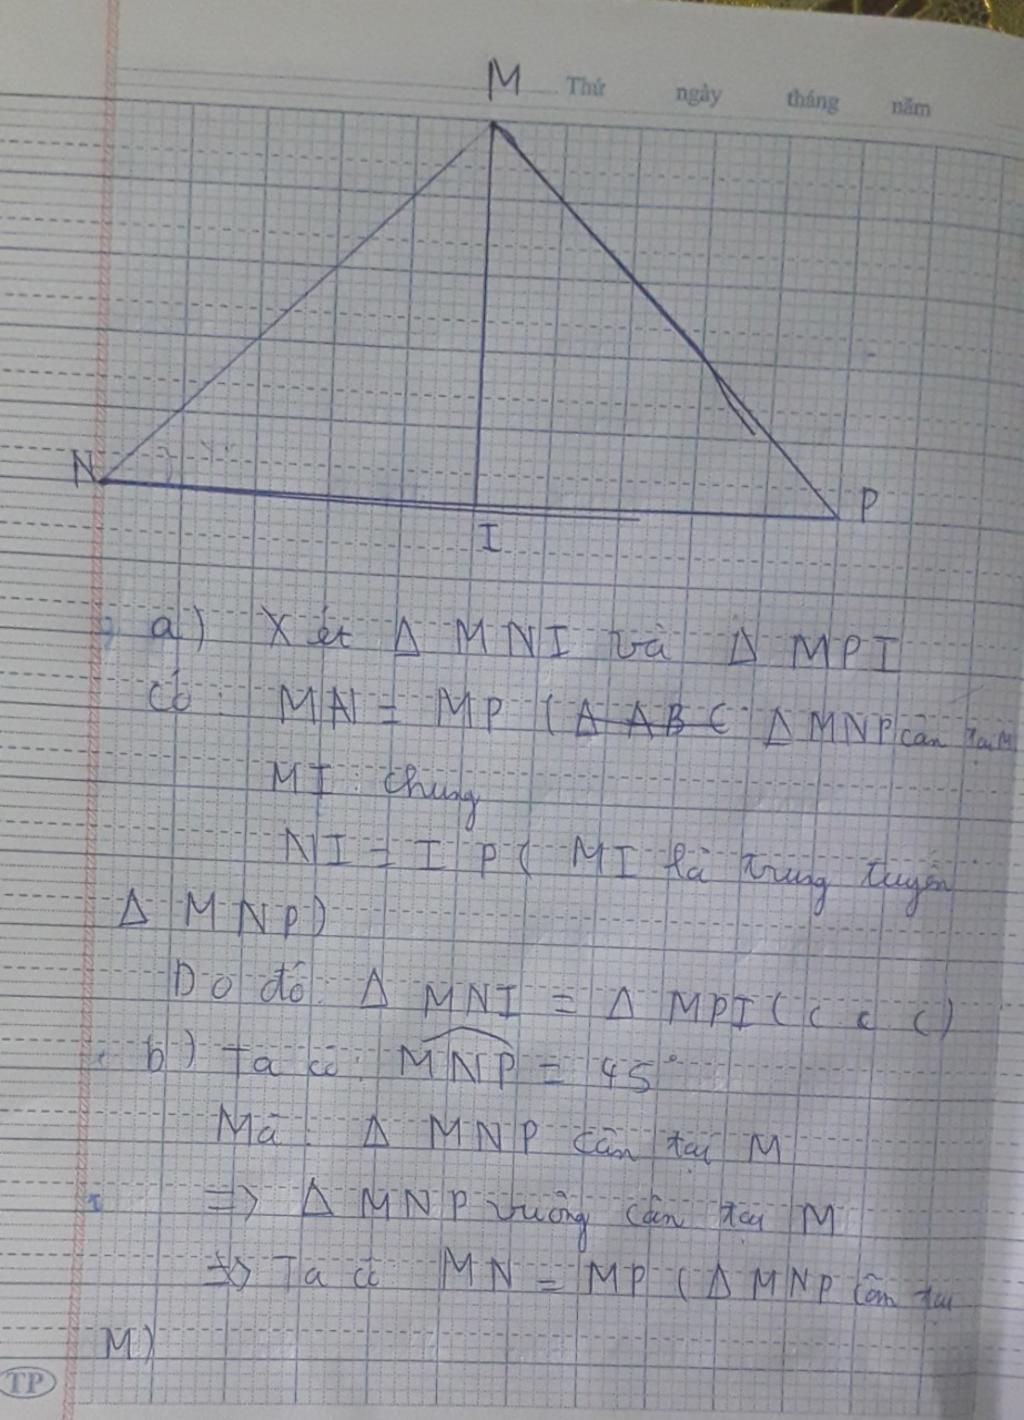 M
Thứ ngày tháng năm
N
P
I
a) Xét Δ MNI và Δ MPI
Có: MN = MP (Δ ABC Δ MNP cân tại M
MI: chung
NI = IP ( MI là trung tuyến
Δ MNP)
Do đó: Δ MNI = Δ MPI (c c c)
b) Ta có: MNP = 45°
Mà: Δ MNP cân tại M
=> Δ MNP vuông cân tại M
=> Ta có MN = MP ( Δ MNP cân tại
M)
TP